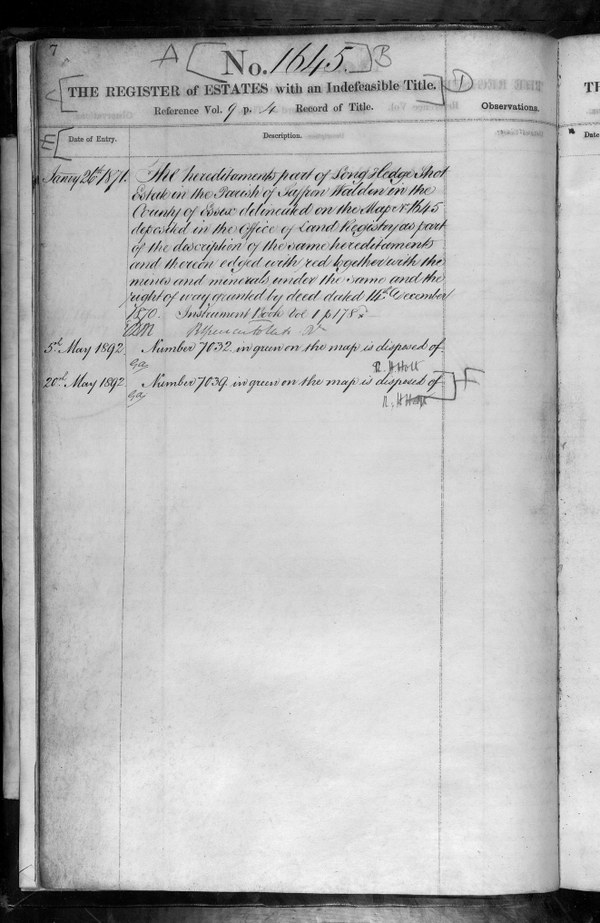 7
A [No. 1645.] B
[THE REGISTER of ESTATES with an Indefeasible Title.] D
Reference Vol. 9 p. 4 Record of Title.
Observations.
E[ Date of Entry.
Description.
Jany 26th 1871.
The hereditaments part of Long Hedge Shot
Estate in the Parish of Saffron Walden in the
County of Essex delineated on the Map No 1645
deposited in the Office of Land Registry as part
of the description of the same hereditaments
and thereon edged with red together with the
mines and minerals under the same and the
right of way granted by deed dated 14th December
1870. Instrument Book Vol 1 p 178
5th May 1892
Number 7032 in green on the map is disposed of
R. H Holt
20th May 1892
Number 7039 in green on the map is disposed of] F
R. H Holt
TH
Date